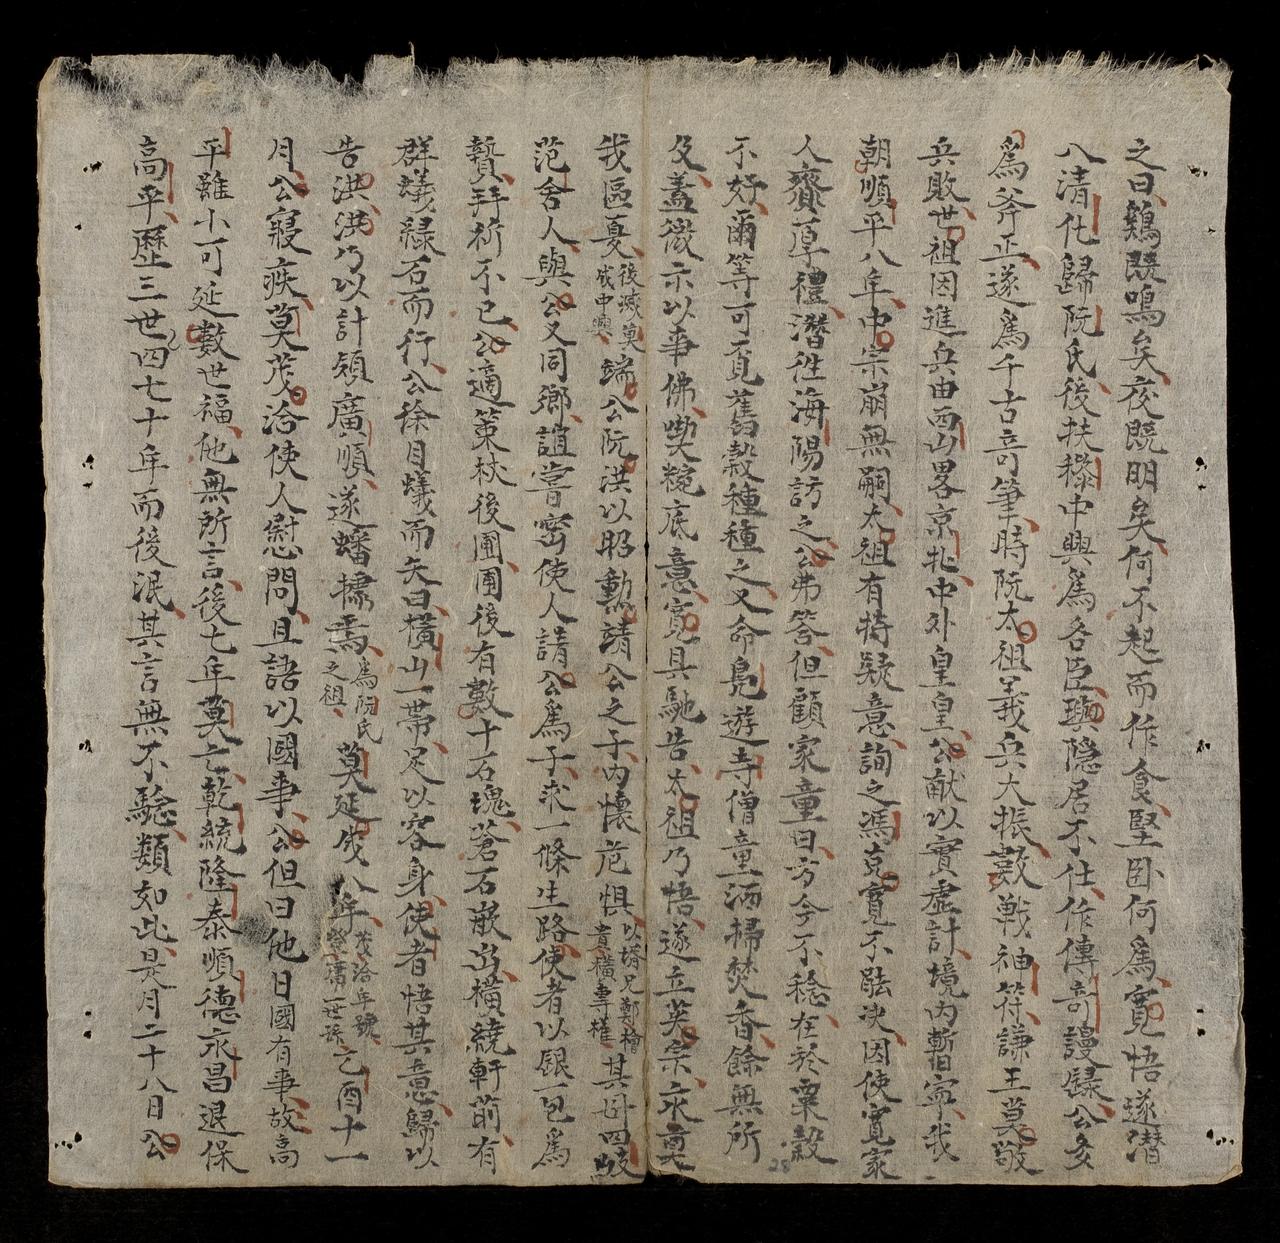 之曰鷄既鳴矣夜既明矣何不起而作食堅卧何爲寬悟遂潜
入清化歸阮氏後扶黎中興爲名臣璵隐居不仕作傳奇謾録公多
爲斧正遂爲千古奇筆時阮太祖義兵大振數戦神符謙王莫敬
兵敗世祖因進兵由西山畧京北中外皇皇公献以實虚計境内暫寧我
朝順平八年中宗崩無嗣太祖有特疑意詢之馮克寛不能决因使寛家
人賫厚禮潜徃海陽訪之公弗答但顧家童曰方今不稔在於粟穀
不好爾等可覓舊穀種種之又命凫遊寺僧童洒掃焚香餘無所
及盖微示以事佛喫粄底意寛具馳告太祖乃悟遂立英宗永奠
我區憂後滅莫成中興端公阮洪以昭勲靖公之子内懐危惧以塔兄鄭檜貴横専權其母四岐
范舍人與公又同鄉誼甞密使人請公爲子求一條生路使者以銀一包爲
贄拜祈不已公適策杖後圃圃後有數十石塊蒼石嵌岀横繞軒前有
群蟻緑石而行公徐目蟻而矢曰横山一帶足以容身使者悟其意歸以
告洪洪乃以計領廣順遂蟠據焉爲阮氏之祖莫延成八年茂洽年號登庸二世孫乙酉十一
月公寢疾莫茂洽使人慰問且語以國事公但曰他日國有事故高
平雖小可延數世福他無所言後七年莫亡乾統隆泰順德永昌退保
高平歷三世四七十年而後泯其言無不驗類如此是月二十八日公